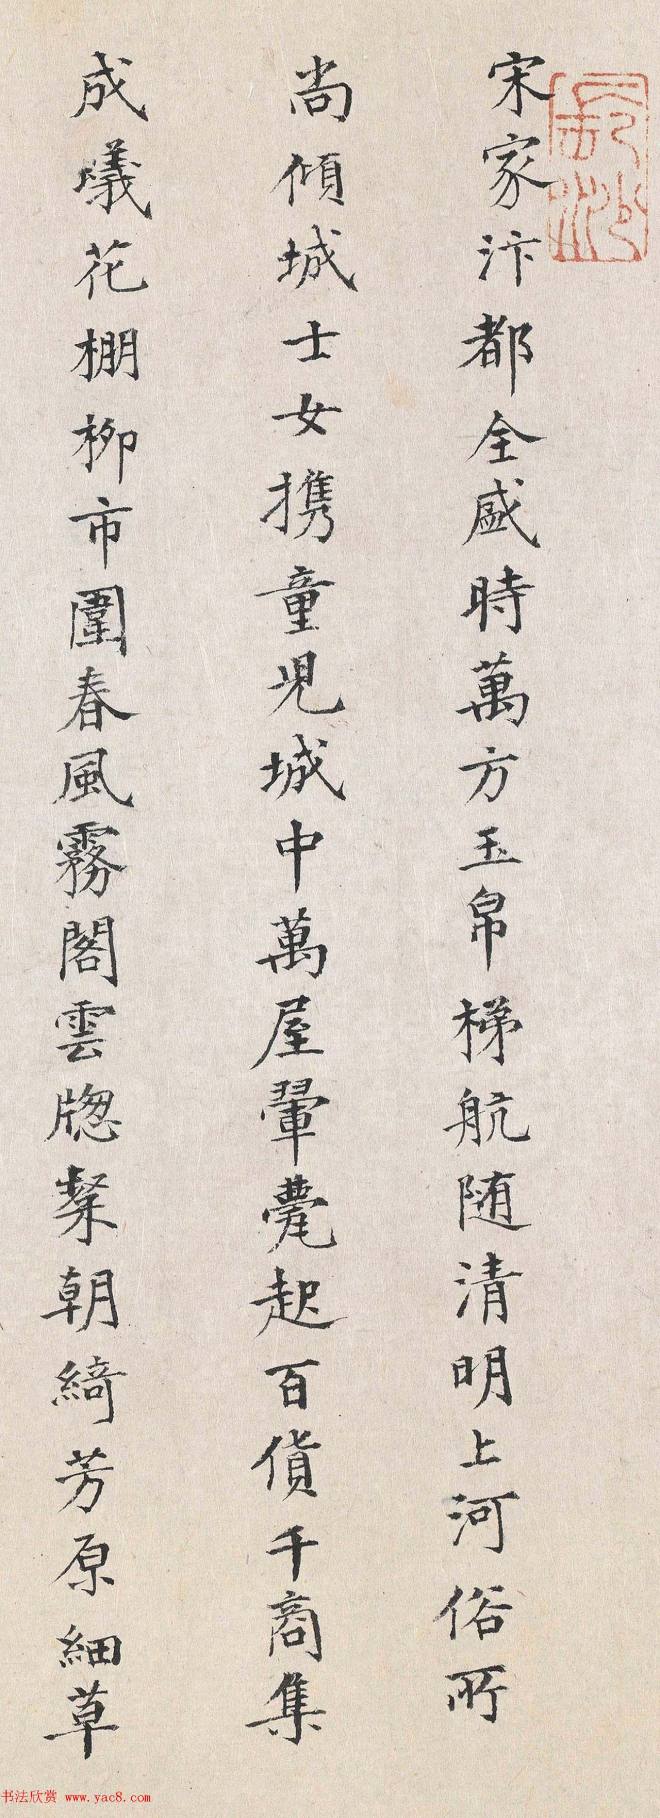 宋家汴都全盛時萬方玉帛梯航随清明上河俗所
尚傾城士女携童児城中萬屋翬甍起百貨千商集
成蟻花棚柳市圍春風霧閣雲牕粲朝綺芳原細草
书法欣赏 www.yac8.com